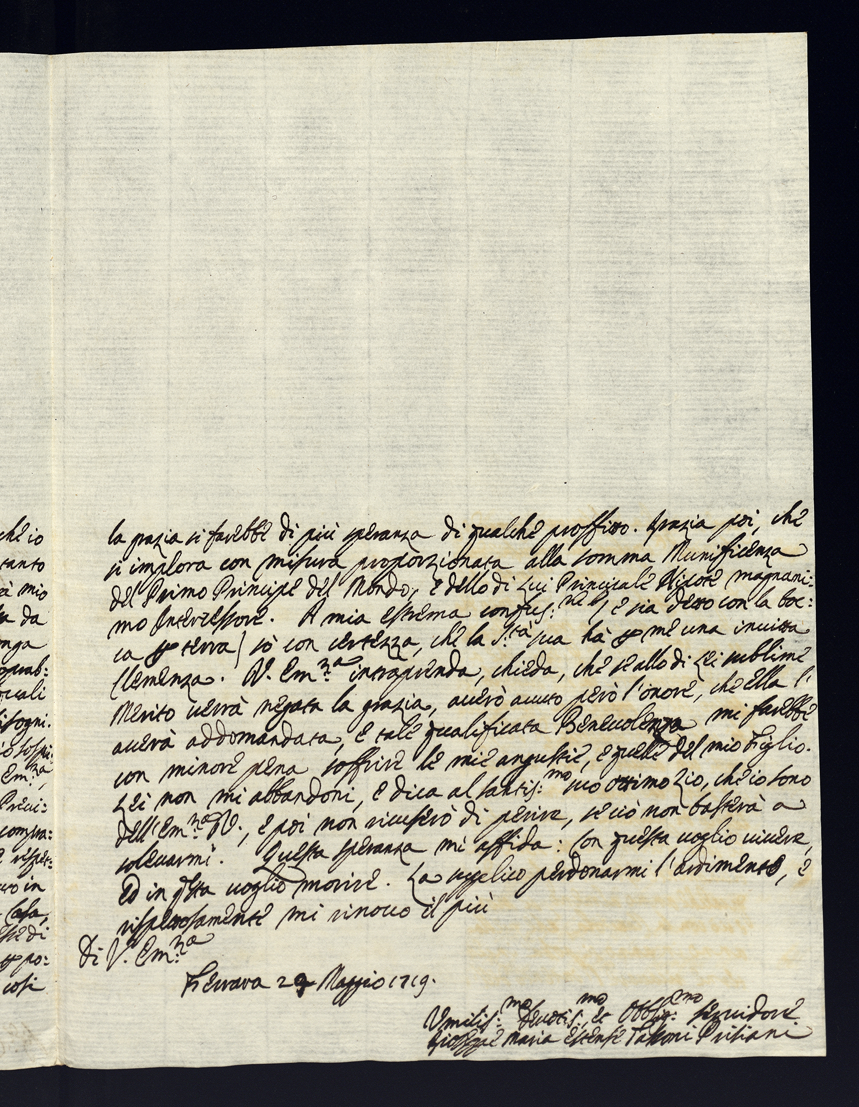 la grazia si farebbe di più speranza di qualche proffitto. Grazia poi, che
si implora con misura proporzionata alla somma Munificenza
del Primo Principe del Mondo, e dello di Lui Principale Nipote magnani:
mo Intercessore. A mia estrema confus:ne, e sia detto con la boc:
ca per terra) sò con certezza, che la S.tà sua hà per me una invitta
Clemenza. V. Em:za intraprenda, chieda, che se allo di Lei sublime
Merito verrà negata la grazia, averò avuto però l'onore, che ella l'
averà addomandata, e tale qualificata Benevolenza mi farebbe
con minore pena soffrire le mie angustie, e quelle del mio Figlio.
Lei non mi abbandoni, e dica al santis:mo suo ottimo Zio, che io sono
dell'Em:za V., e poi non ricuserò di perire, se ciò non basterà a
solevarmi. Questa speranza mi affida: Con questa voglio vivere,
Ed in questa voglio morire. La supplico perdonarmi l'ardimento, e
rispetosamente mi rinovo il più
Di V. Em:za
Ferrara 29 Maggio 1719.
Umilis:mo Devotis:mo et Obblig:mo servidore
Gioseppe Maria Estense Tassoni
che io
tanto
mio
da
quali
Em:za
in
Casa,
di
così